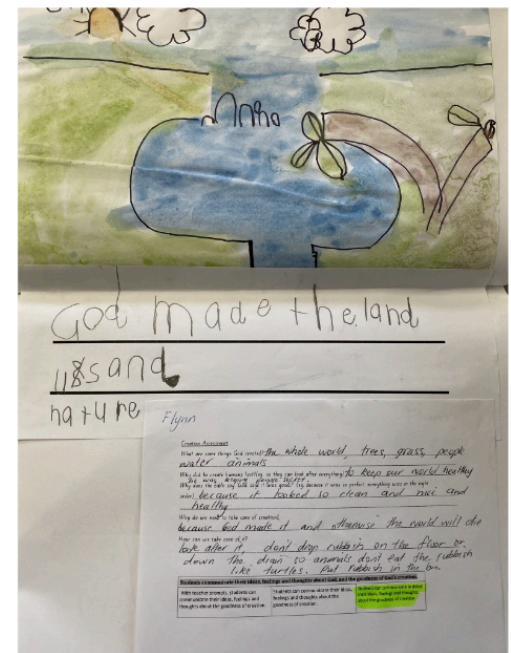 God made the land
sand
nature
Flynn
Creation Assessment
What are some things God created? the whole world, trees, grass, people
water animals
Why did he create humans lastly, so they can look after everything) to keep our world healthy
Why does the
because it looked so clean and nice and
healthy
Why do we need to take care of creation?
because God made it and otherwise the world will die
How can we take care of it?
look after it, don't drop rubbish on the floor or
down the drain so animals dont eat the rubbish
like turtles. Put rubbish in the bin.
Students communicate their ideas, feelings and thoughts about God, and the goodness of God's creation.
With teacher prompts, students can communicate their ideas, feelings and thoughts about the goodness of creation.
Students can communicate their ideas, feelings and thoughts about the goodness of creation.
about the goodness of creation